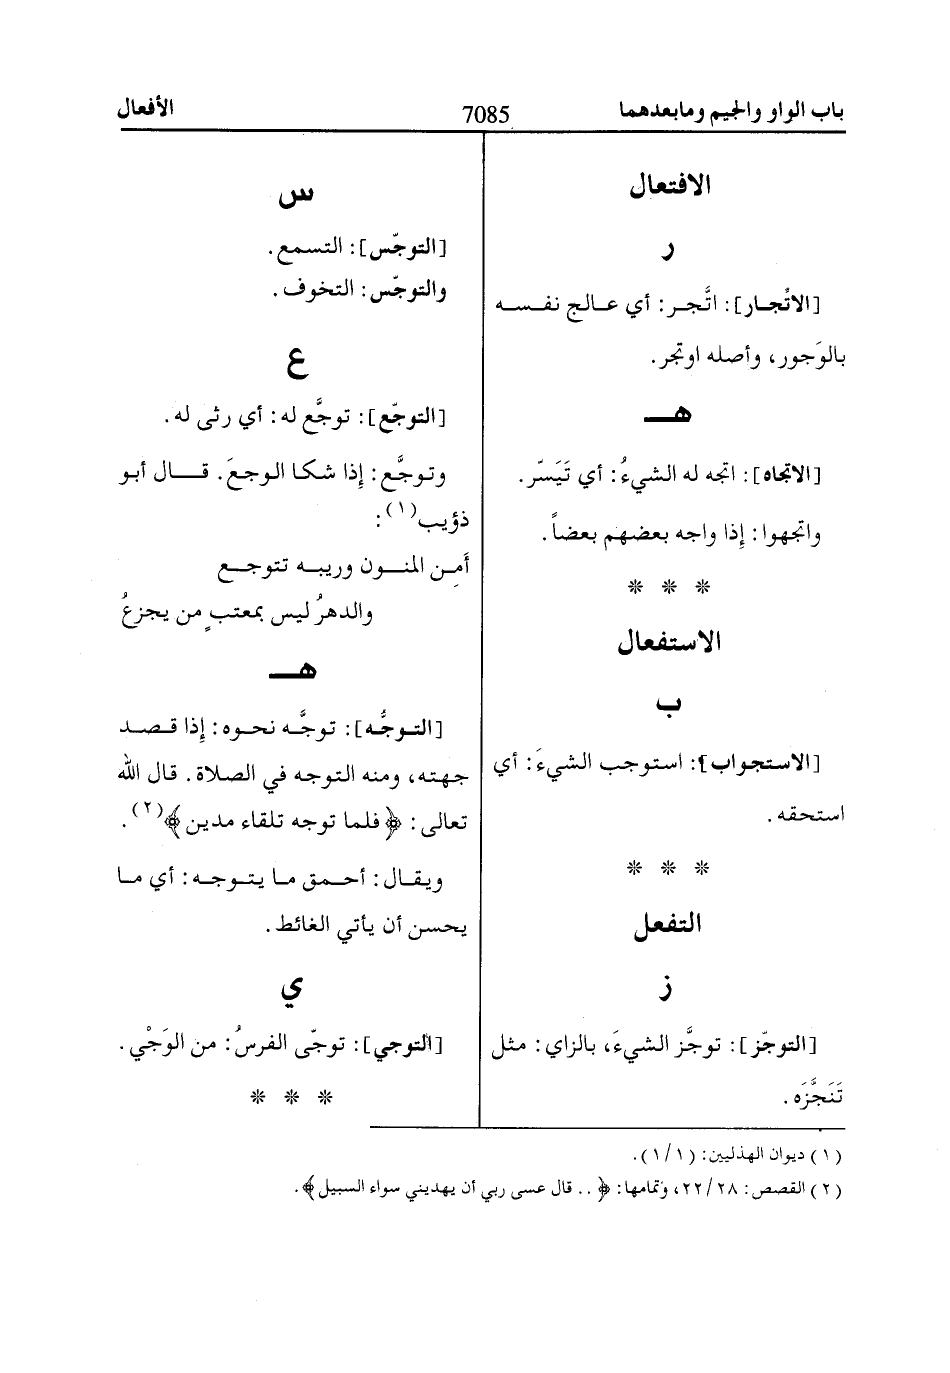 باب الواو والجيم ومابعدهما
7085
الأفعال
الافتعال
ر
[الاتْجار]: اتَّجر: أي عالج نفسه
بالوَجور، وأصله اوتجر.
هـ
[الاتجاه]: اتجه له الشيءُ: أي تَيَسّر.
واتجهوا: إذا واجه بعضهم بعضاً.
* * *
الاستفعال
ب
[الاستجواب]: استوجب الشيءَ: أي
استحقه.
* * *
التفعل
ز
[التوجّز]: توجَّز الشيءَ، بالزاي: مثل
تَنَجَّزَه.
س
[التوجّس]: التسمع.
والتوجّس: التخوف.
ع
[التوجّع]: توجَّع له: أي رثى له.
وتوجَّع: إذا شكا الوجعَ. قال أبو
ذؤيب(١):
أَمِن المنون وريبه تتوجع
والدهرُ ليس بمعتبٍ من يجزعُ
هـ
[التوجُّه]: توجَّه نحوه: إذا قصد
جهته، ومنه التوجه في الصلاة. قال الله
تعالى: ﴿فلما توجه تلقاء مدين﴾(٢).
ويقال: أحمق ما يتوجه: أي ما
يحسن أن يأتي الغائط.
ي
[التوجي]: توجّى الفرسُ: من الوَجْي.
* * *
(١) ديوان الهذليين: (١/١).
(٢) القصص: ٢٢/٢٨، وتمامها: ﴿.. قال عسى ربي أن يهديني سواء السبيل﴾.